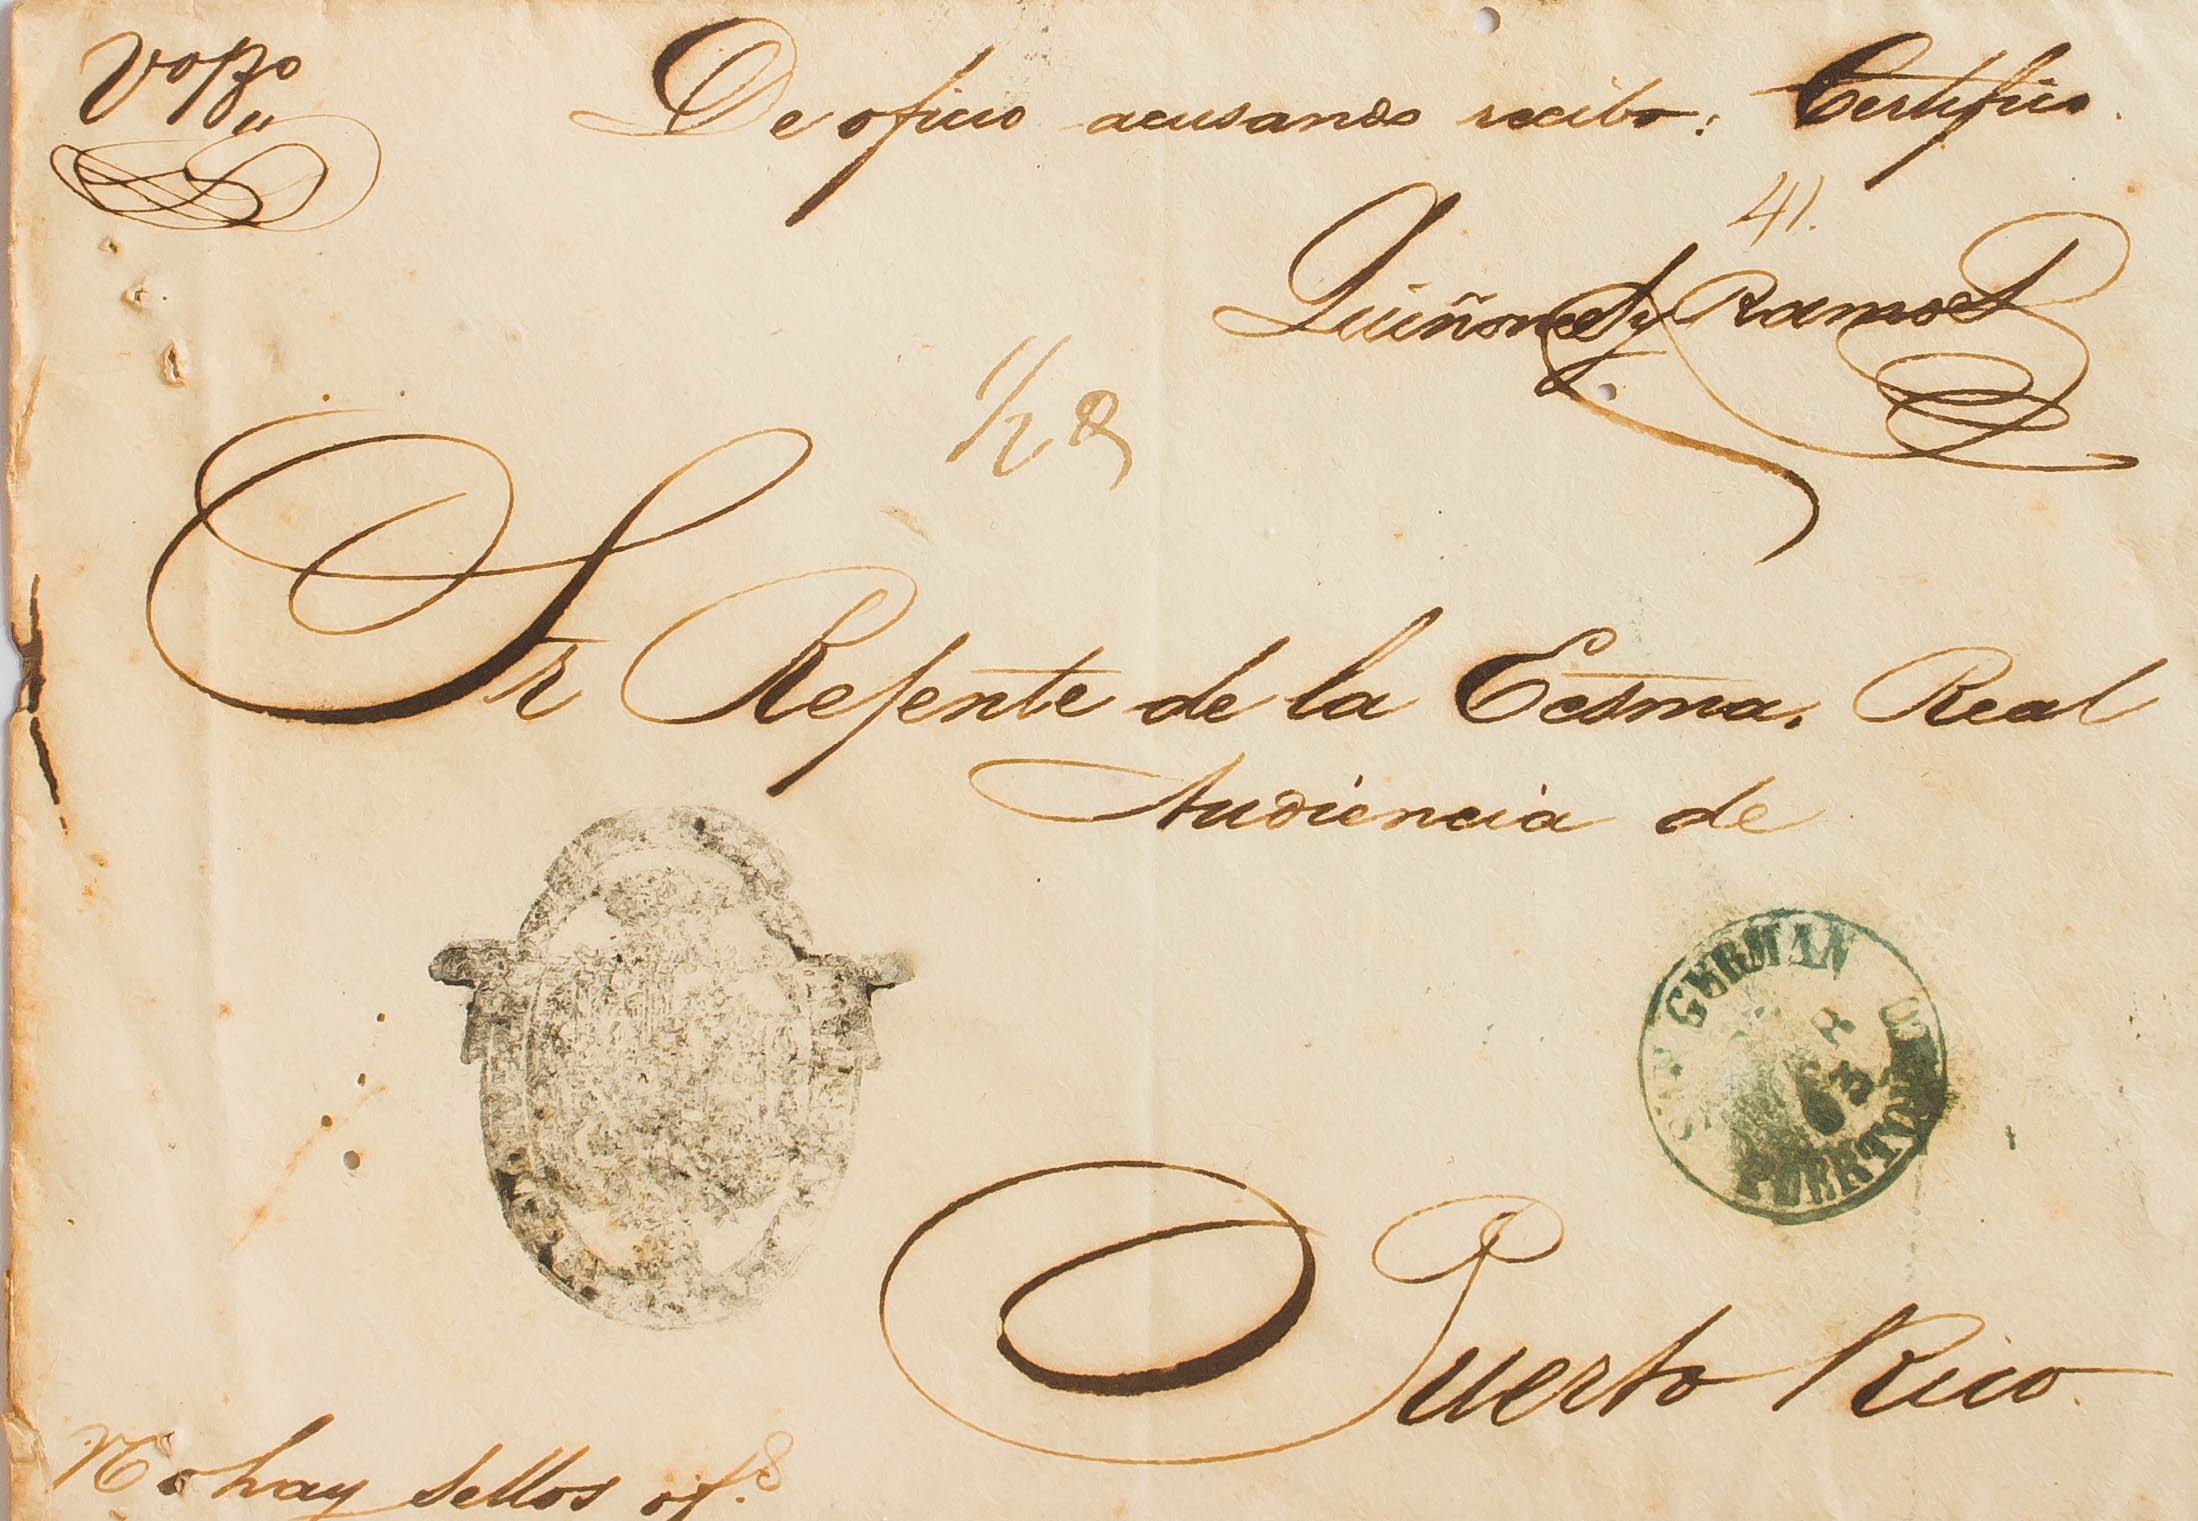 VoBo
De oficio acusando recibo: Certifico.
41.
Quiñones y Ramos
1/2
Sr Rejente de la Ecsma. Real
Audiencia de
SAN GERMAN
63
PUERTO-RICO
Puerto Rico.
No hay sellos ofs